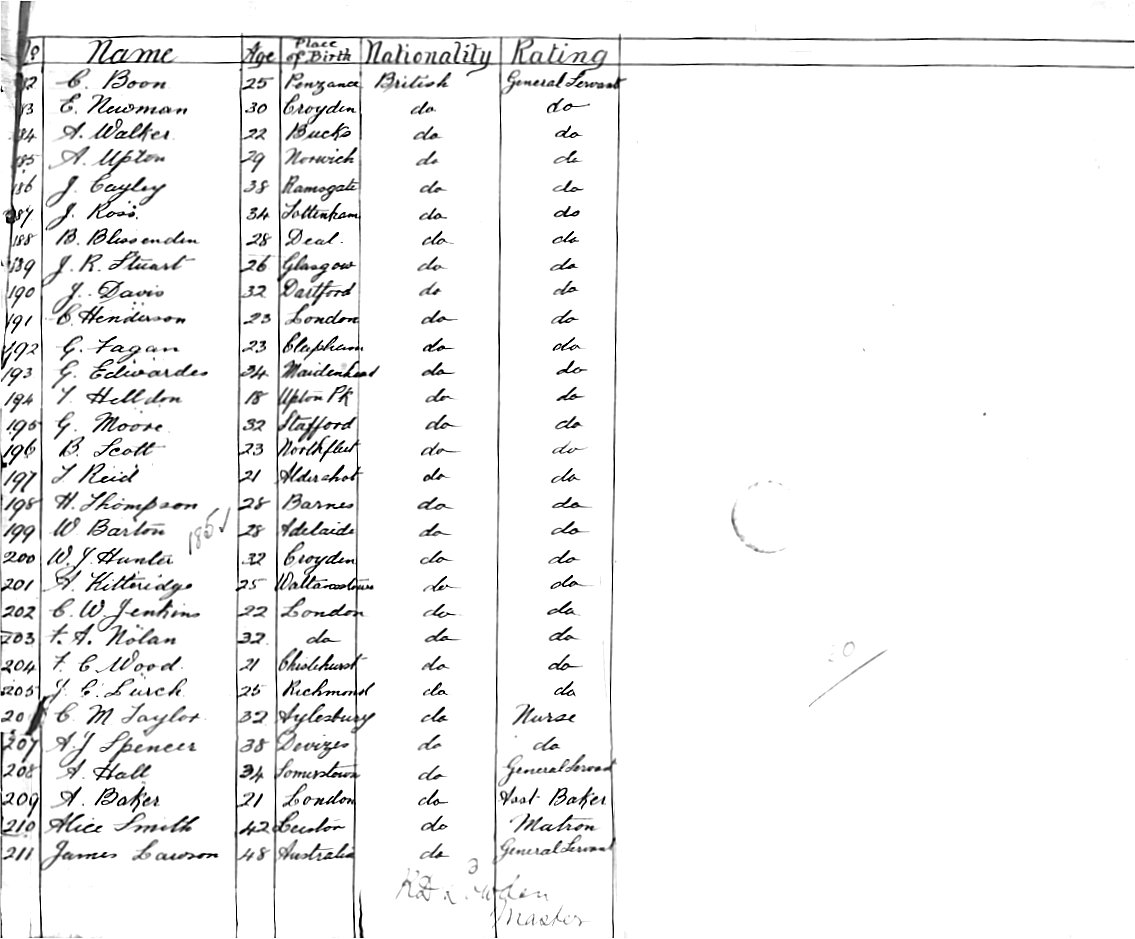 No Name Age Place of Birth Nationality Rating
182 C. Boon 25 Penzance British General Servant
183 E. Newman 30 Croyden do do
184 A. Walker 22 Bucks do do
185 A. Upton 29 Norwich do do
186 J. Cayley 38 Ramsgate do do
187 J. Ross 34 Tottenham do do
188 B. Blissenden 28 Deal. do do
189 J. R. Stuart 26 Glasgow do do
190 J. Davis 32 Dartford do do
191 C. Henderson 23 London do do
192 G. Fagan 23 Clapham do do
193 G. Edwardes 34 Maidenhead do do
194 T Helldon 18 Upton Pk do do
195 G. Moore 32 Stafford do do
196 B. Scott 23 Northfleet do do
197 T Reid 21 Aldershot do do
198 H. Thompson 28 Barnes do do
199 W. Barton 28 Adelaide do do
200 W. J. Hunter 32 Croyden do do
201 A. Kitteridge 25 do do
202 C. W. Jenkins 22 London do do
203 F. A. Nolan 32 do do do
204 F. C Wood 21 Chislehurst do do
205 J. C. Lurch 25 Richmond do do
20 C. M Taylor 32 Aylesbury do Nurse
207 A. J Spencer 38 Devizes do do
208 A. Hall 34 Somerstown do General Servant
209 A. Baker 21 London do Asst Baker
210 Alice Smith 42 Leiston do Matron
211 James Lawson 48 Australia do General Servant
Master